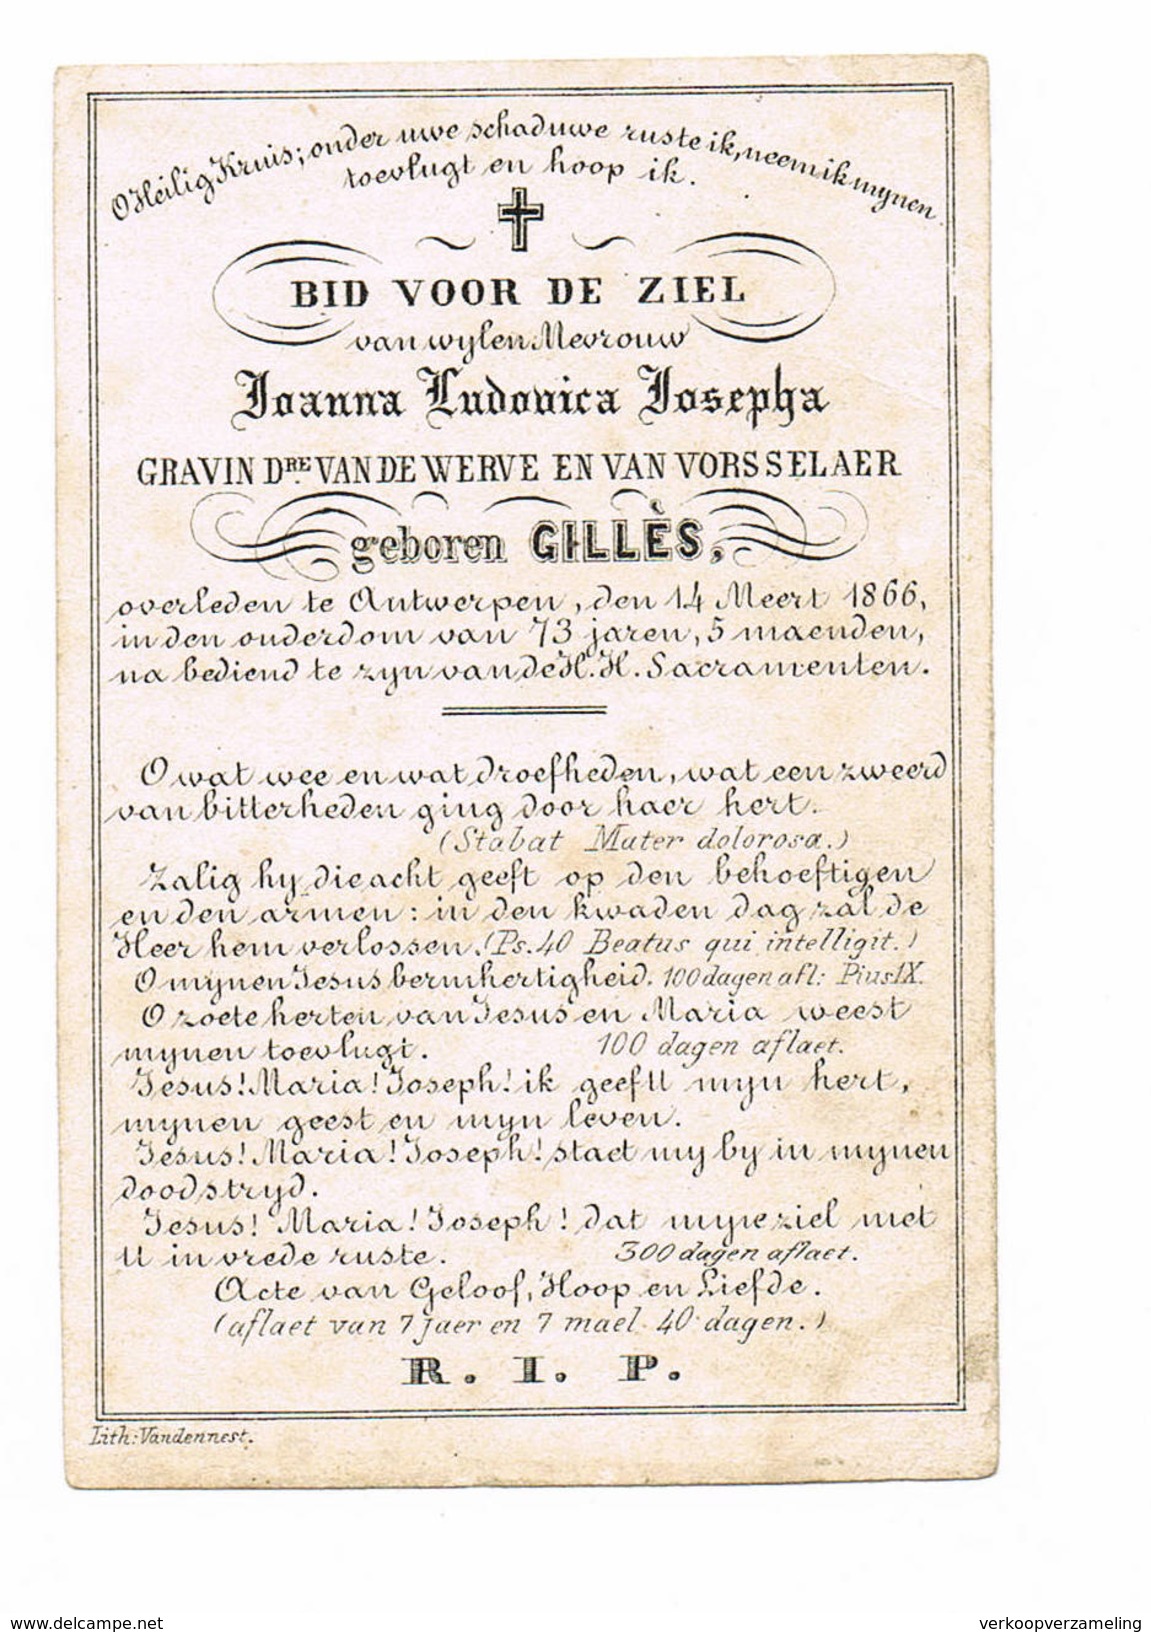 O Heilig Kruis; onder uwe schaduwe ruste ik, neem ik mynen
toevlugt en hoop ik.
BID VOOR DE ZIEL
van wylen Mevrouw
Joanna Ludovica Josepha
GRAVIN DRE VAN DE WERVE EN VAN VORSSELAER
geboren GILLÈS,
overleden te Antwerpen, den 14 Meert 1866,
in den ouderdom van 73 jaren, 5 maenden,
na bediend te zyn van de H.H. Sacramenten.
O wat wee en wat droefheden, wat een zweerd
van bitterheden ging door haer hert.
(Stabat Mater dolorosa.)
Zalig hy die acht geeft op den behoeftigen
en den armen: in den kwaden dag zal de
Heer hem verlossen. (Ps. 40 Beatus qui intelligit.)
O mynen Jesus bermhertigheid. 100 dagen afl: Pius IX.
O zoete herten van Jesus en Maria weest
mynen toevlugt. 100 dagen aflaet.
Jesus! Maria! Joseph! ik geef U myn hert,
mynen geest en myn leven.
Jesus! Maria! Joseph! staet my by in mynen
doodstryd.
Jesus! Maria! Joseph! dat myne ziel met
U in vrede ruste. 300 dagen aflaet.
Acte van Geloof, Hoop en Liefde.
(aflaet van 7 jaer en 7 mael 40 dagen.)
R. I. P.
Lith: Vandennest.
www.delcampe.net verkoopverzameling